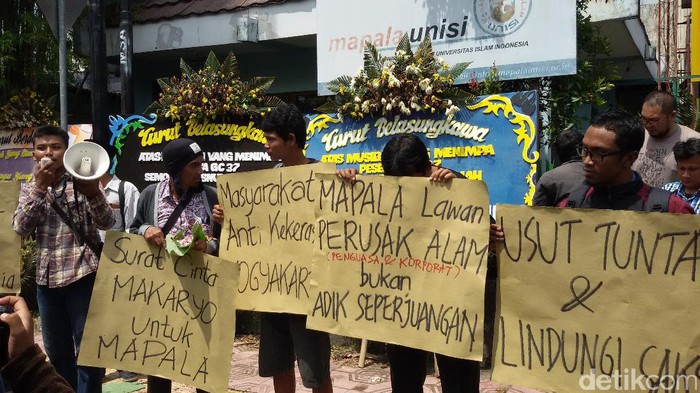 mapala unisi
UNIVERSITAS ISLAM INDONESIA
Turut Belasungkawa
ATAS
YANG MENIMPA
GC 37
Turut Belasungkawa
ATAS MUSIBAH
MENIMPA
PESE
Surat Cinta
MAKARYO
untuk
MAPALA
Masyarakat
Anti Kekera
YOGYAKAR
MAPALA Lawan
PERUSAK ALAM
(PENGUASA & KORPORAT)
bukan
ADIK SEPERJUANGAN
USUT TUNTA
&
LINDUNGI
detikcom